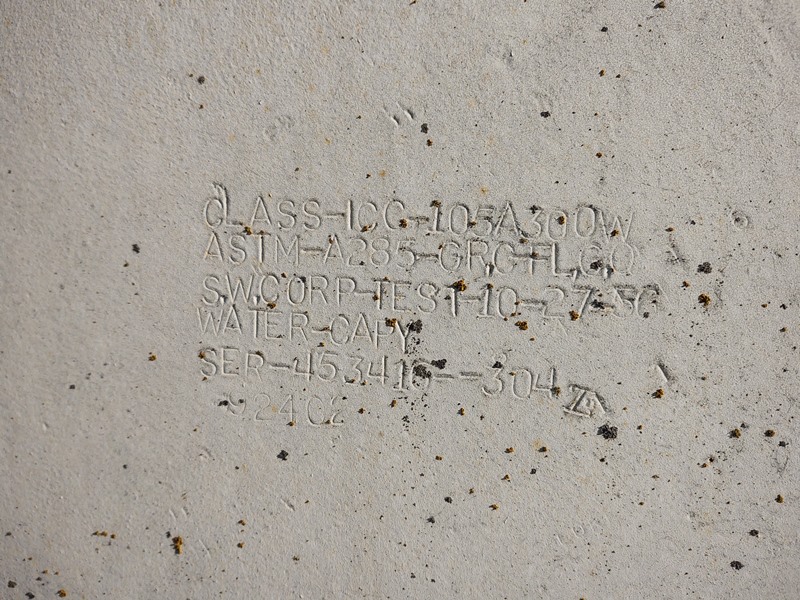 CLASS-ICC-105A300W
ASTM-A285-GRC-FL,C,O
S.W.CORP-TEST-10-27-56
WATER-CAPY
SER-453416--304
92402